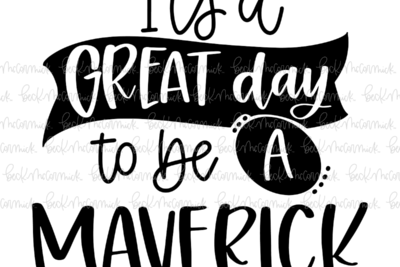 It's a
GREAT day
to be A
MAVERICK